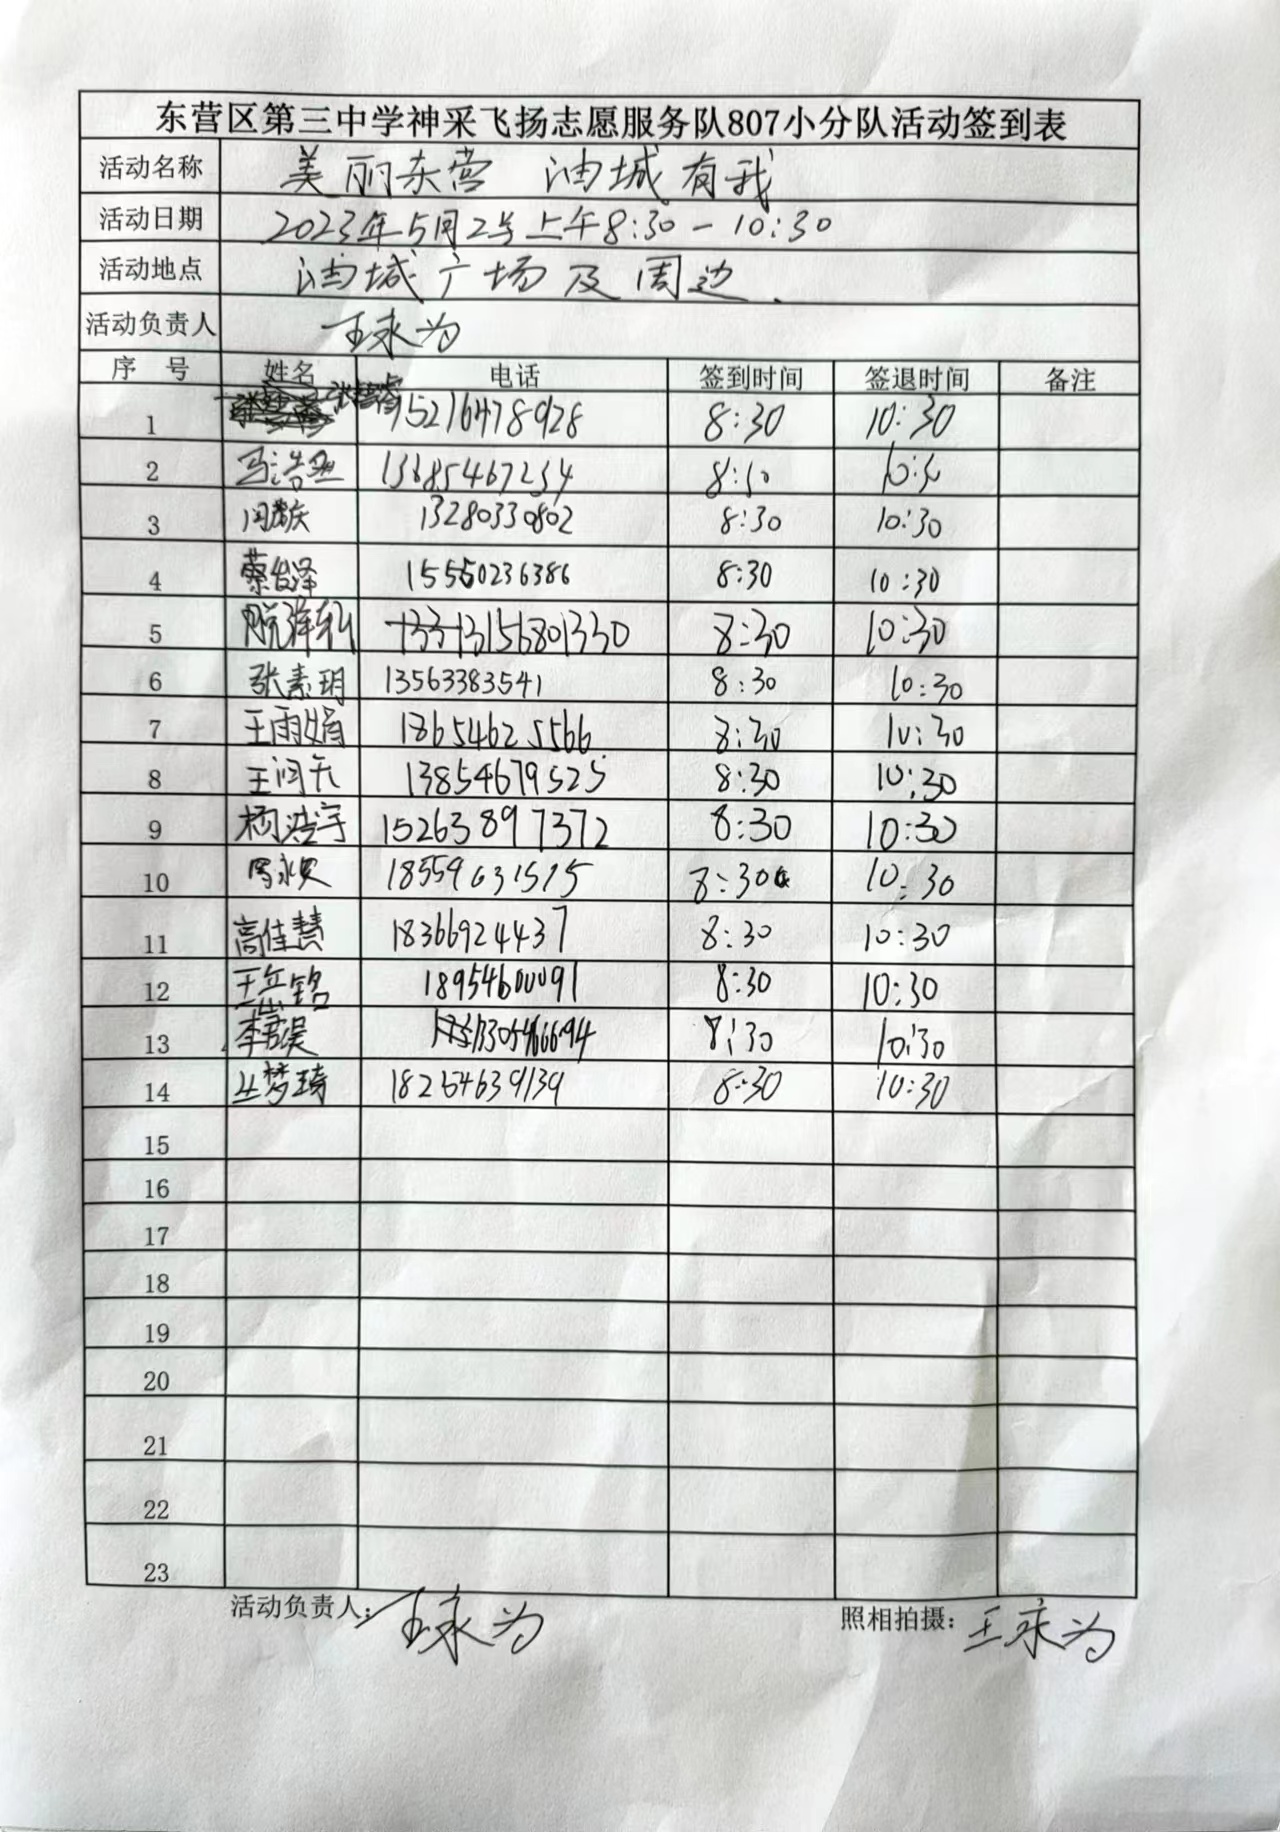 东营区第三中学神采飞扬志愿服务队807小分队活动签到表
活动名称 美丽东营 油城有我
活动日期 2023年5月2号上午8:30-10:30
活动地点 油城广场及周边.
活动负责人 王永为
序 号 姓名 电话 签到时间 签退时间 备注
1 15216478928 8:30 10:30
2 马浩 13685467234 8:30 10:30
3 13280330802 8:30 10:30
4 蔡 泽 15550236386 8:30 10:30
5 13156801330 8:30 10:30
6 张素玥 13563383541 8:30 10:30
7 王雨娟 18654625566 8:30 10:30
8 王闫 13854679525 8:30 10:30
9 杨浩宇 15263897372 8:30 10:30
10 18559631515 8:30 10:30
11 高佳慧 18366924437 8:30 10:30
12 铭 18954600091 8:30 10:30
13 李君昊 13305466694 8:30 10:30
14 丛梦琦 18254639139 8:30 10:30
15
16
17
18
19
20
21
22
23
活动负责人: 王永为 照相拍摄: 王永为